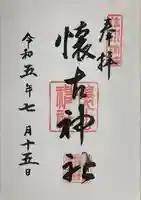 奉拝
懐古神社
令和五年七月十五日